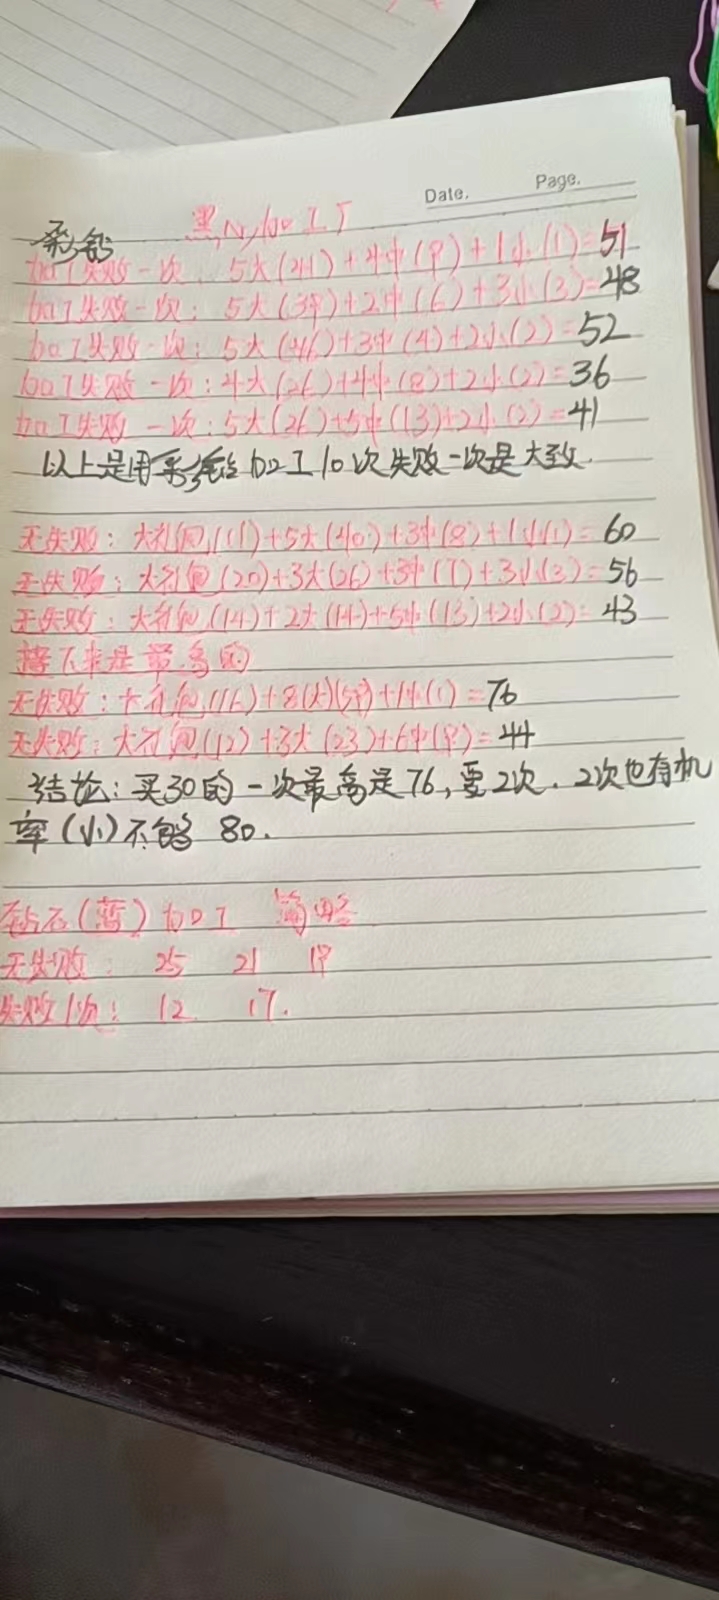 Date. Page.
黑心加工厂
彩钻
加工失败一次：5大(41)+4中(9)+1小(1)=51
加工失败一次：5大(39)+2中(6)+3小(3)=48
加工失败一次：5大(46)+3中(4)+2小(2)=52
加工失败一次：4大(26)+4中(8)+2小(2)=36
加工失败一次：5大(26)+5中(13)+2小(2)=41
以上是用彩钻加工10次失败一次是大致.
无失败：大礼包(11)+5大(40)+3中(8)+1小(1)=60
无失败：大礼包(20)+3大(26)+3中(7)+3小(3)=56
无失败：大礼包(14)+2大(14)+5中(13)+2小(2)=43
接下来是最高的
无失败：大礼包(16)+8(大)(59)+1小(1)=76
无失败：大礼包(12)+3大(23)+6中(9)=44
结论：买30的一次最高是76,要2次.2次也有机
率(小)不够 80.
钻石(蓝)加工 简略
无失败： 25 21 19
失败1次： 12 17.